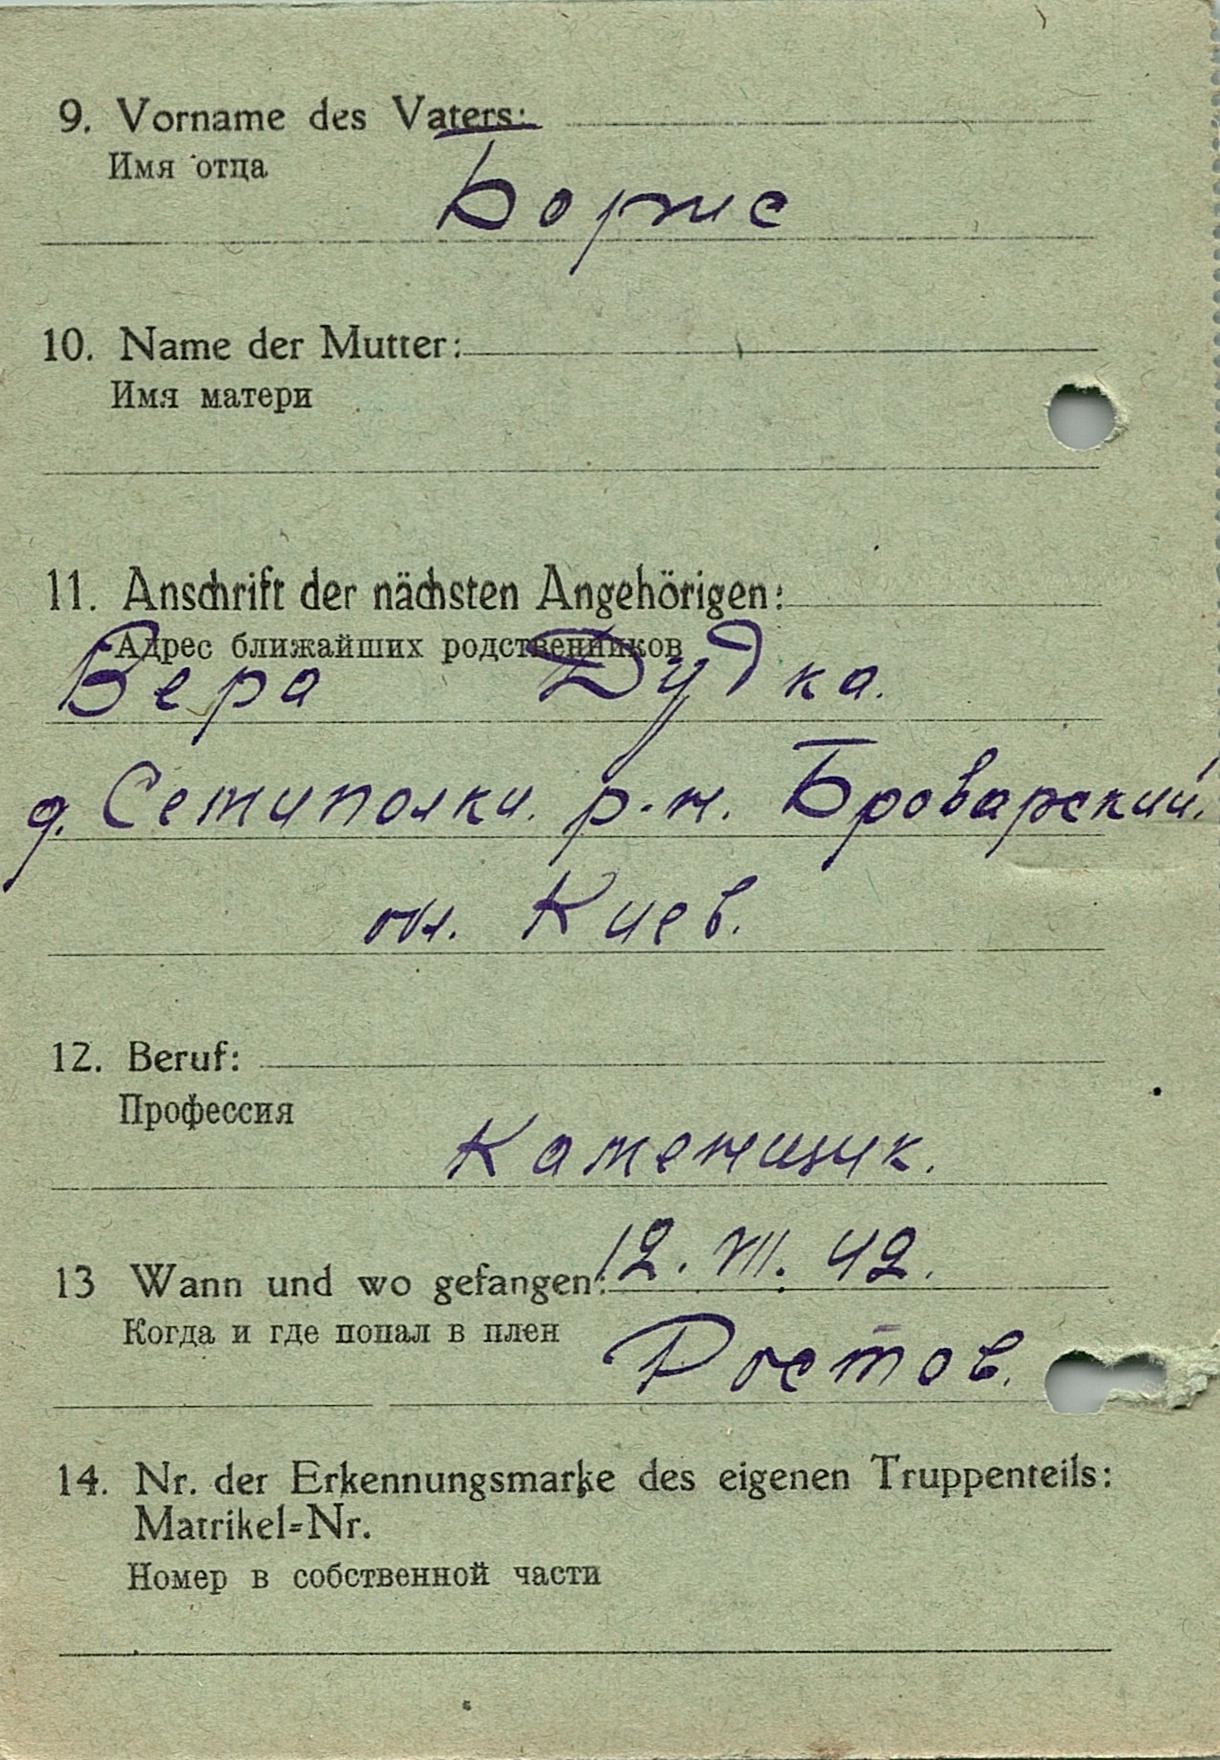 9. Vorname des Vaters:
Имя отца
Борис
10. Name der Mutter:
Имя матери
11. Anschrift der nächsten Angehörigen:
Адрес ближайших родственников
Вера Дудка.
д. Семиполки. р-н. Броварский.
ол. Киев.
12. Beruf:
Профессия
Каменщик.
13 Wann und wo gefangen: 12. VII. 42.
Когда и где попал в плен
Ростов.
14. Nr. der Erkennungsmarke des eigenen Truppenteils:
Matrikel=Nr.
Номер в собственной части